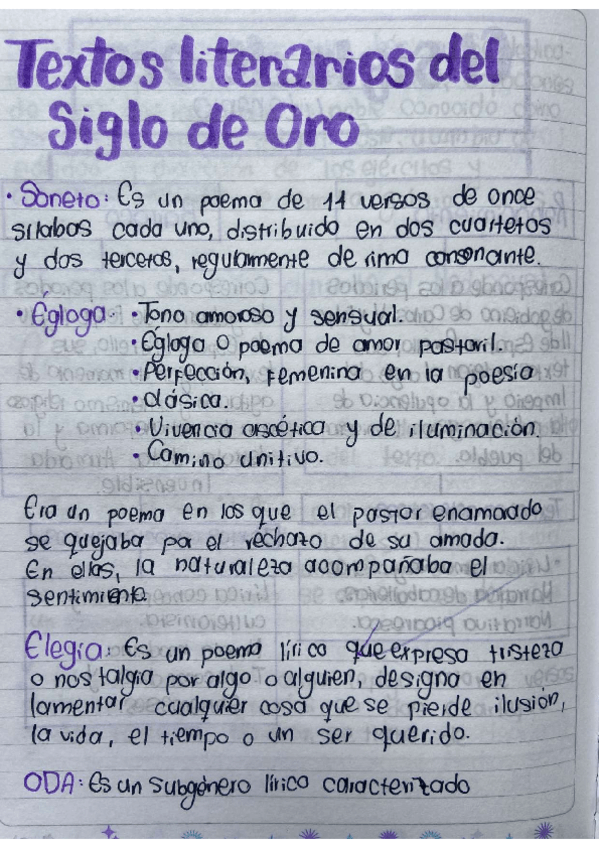 Textos literarios del
Siglo de Oro
• Soneto: Es un poema de 14 versos de once
sílabas cada uno, distribuido en dos cuartetos
y dos terceros, regularmente de rima consonante.
• Égloga: • Tono amoroso y sensual.
• Égloga o poema de amor pastoril.
• Perfección, Femenina en la poesía
• clásica.
• Vivencia ascética y de iluminación.
• Camino unitivo.
Era un poema en los que el pastor enamorado
se quejaba por el rechazo de su amada.
En ellas, la naturaleza acompañaba el
sentimiento.
Elegía: Es un poema lírico que expresa tristeza
o nostalgia por algo o alguien, designa en
lamentar cualquier cosa que se pierde ilusión,
la vida, el tiempo o un ser querido.
ODA: Es un subgénero lírico caracterizado